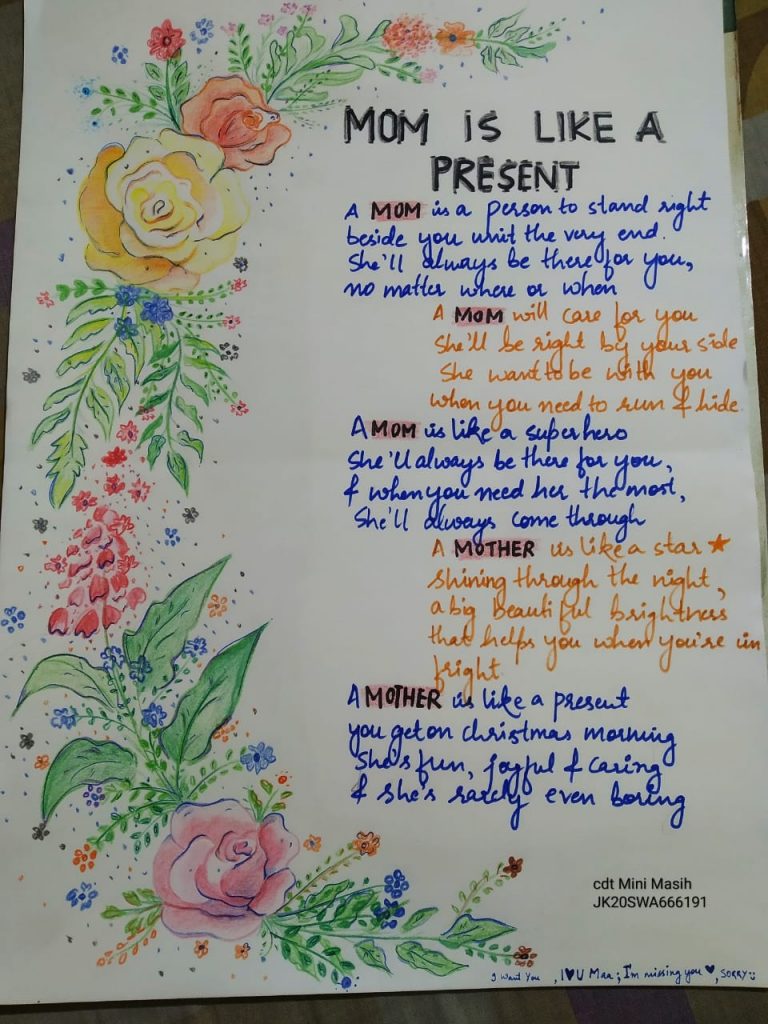 MOM IS LIKE A
PRESENT
A MOM is a person to stand right
beside you unit the very end.
She'll always be there for you,
no matter where or when
A MOM will care for you
She'll be right by your side
She want to be with you
when you need to run & hide
A MOM is like a superhero
She'll always be there for you,
& when you need her the most,
She'll always come through
A MOTHER is like a star ★
shining through the night,
a big beautiful brightness
that helps you when you're in
fright
A MOTHER is like a present
you get on christmas morning
She's fun, joyful & caring
& she's rarely even boring
cdt Mini Masih
JK20SWA666191
I Want You , I ♥ U Maa ; I'm missing you ♥, SORRY :)